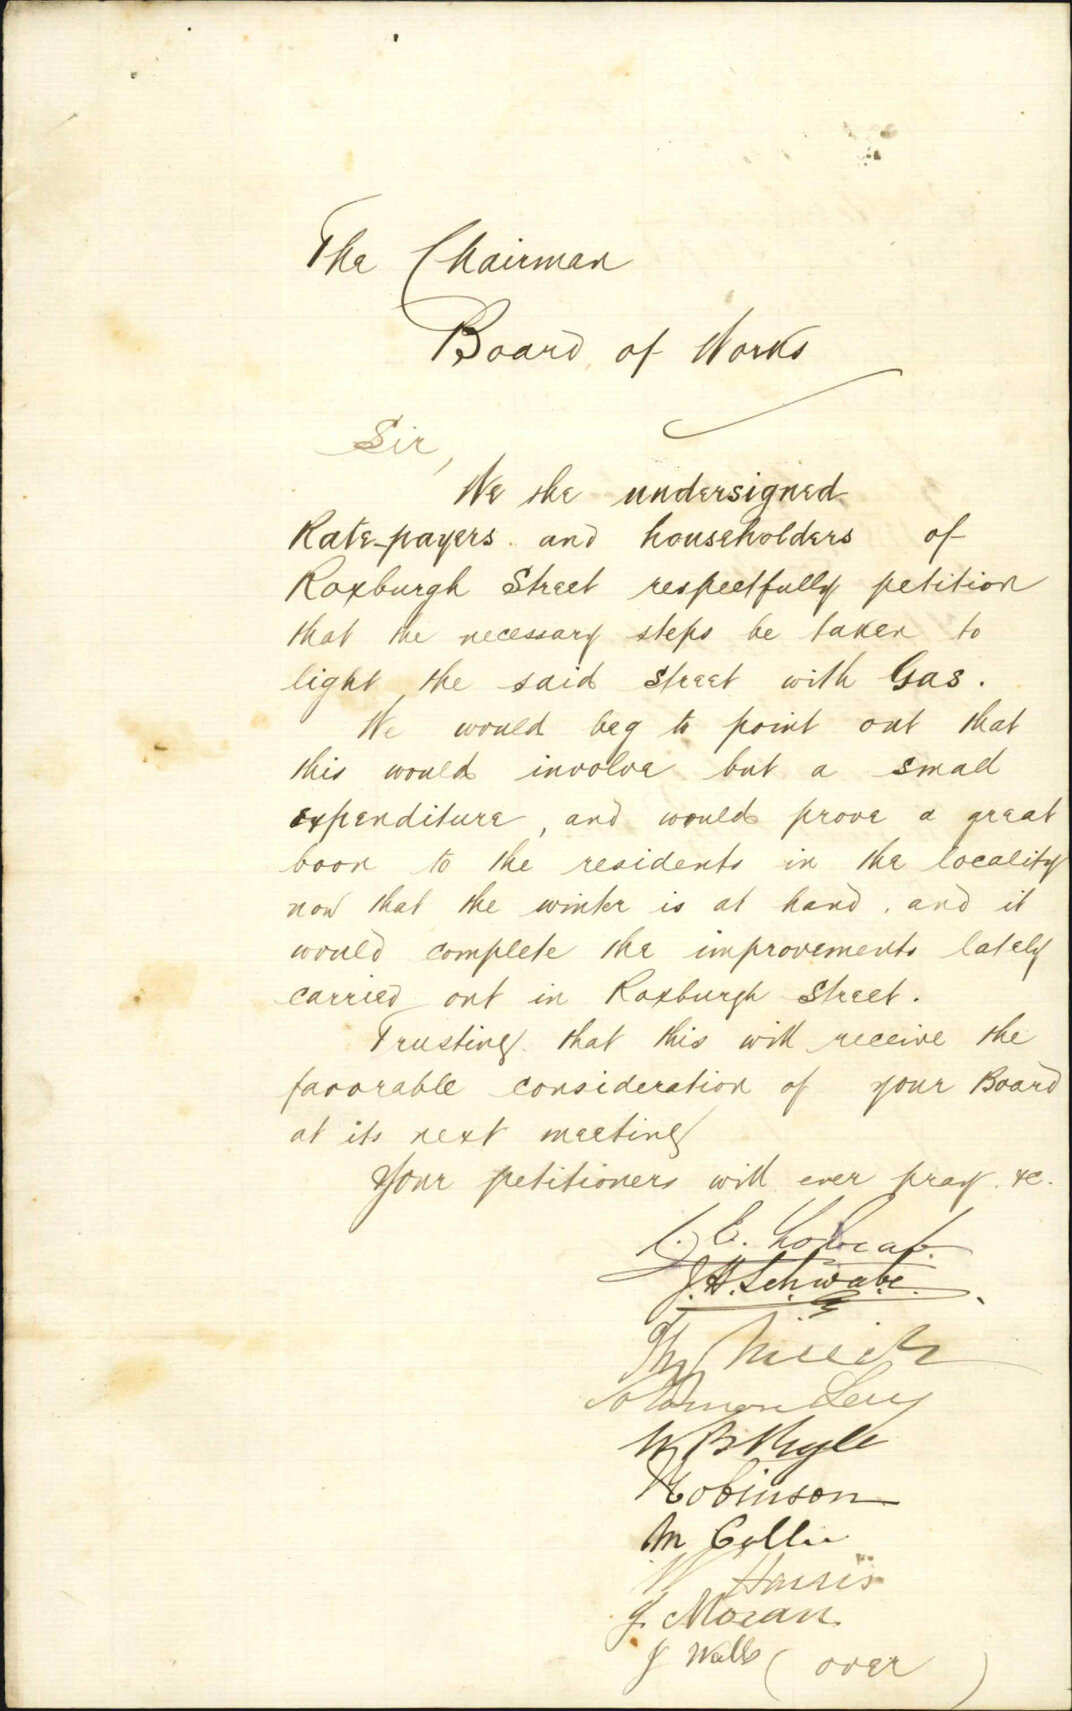 The Chairman
Board of Works
Sir,
We the undersigned
Rate-payers and householders of
Roxburgh Street respectfully petition
that the necessary steps be taken to
light the said street with Gas.
We would beg to point out that
this would involve but a small
expenditure, and would prove a great
boon to the residents in the locality
now that the winter is at hand, and it
would complete the improvements lately
carried out in Roxburgh Street.
Trusting that this will receive the
favorable consideration of your Board
at its next meeting
Your petitioners will ever pray. &c.
E.
J. H. Schwabe.
Solomon Levy
W B Kyle
Robinson
M Collie
W Harris
J. Moran
J Walls (over)